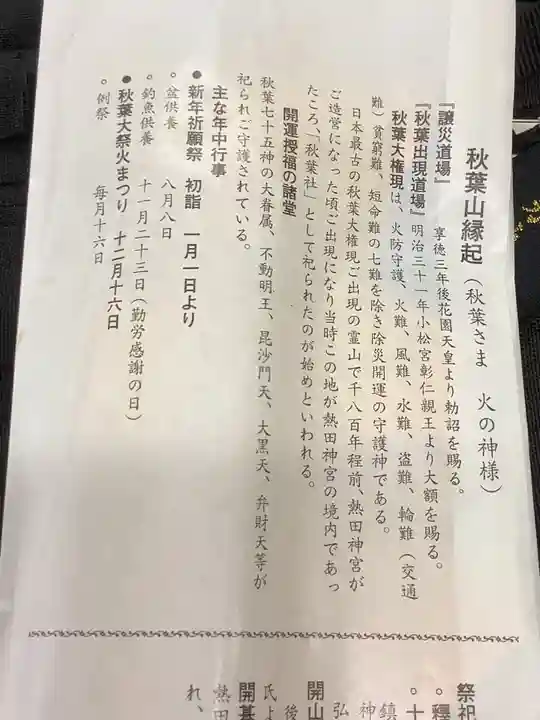 秋葉山縁起（秋葉さま　火の神様）
『譲災道場』　享徳三年後花園天皇より勅詔を賜る。
『秋葉出現道場』明治三十一年小松宮彰仁親王より大額を賜る。
秋葉大権現は、火防守護、火難、風難、水難、盗難、輪難（交通
難）貧窮難、短命難の七難を除き除災開運の守護神である。
日本最古の秋葉大権現ご出現の霊山で千八百年程前、熱田神宮が
ご造営になった頃ご出現になり当時この地が熱田神宮の境内であっ
たころ、「秋葉社」として祀られたのが始めといわれる。
開運授福の諸堂
秋葉七十五神の大眷属、不動明王、毘沙門天、大黒天、弁財天等が
祀られご守護されている。
主な年中行事
●新年祈願祭　初詣　一月一日より
◦盆供養　八月八日
◦釣魚供養　十一月二十三日（勤労感謝の日）
●秋葉大祭火まつり　十二月十六日
◦例祭　毎月十六日
祭祀
◦釋
◦十
鎮
神
弘
開山
後
氏よ
開基
熱田
れ、